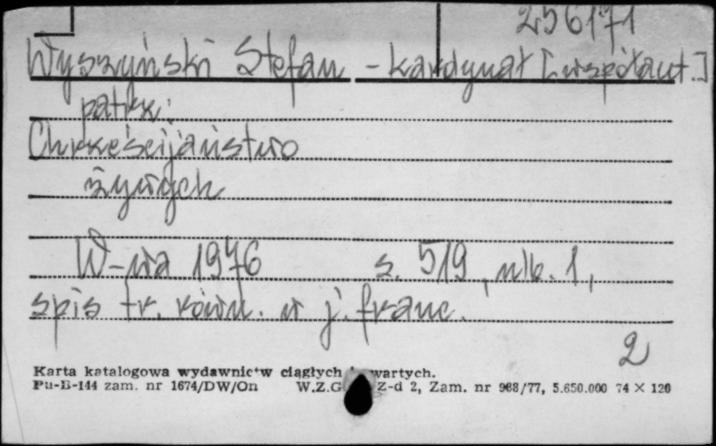 256171
Wyszyński Stefan - kardynał [współaut.]
patrz:
Chrześcijaństwo
żywych
W-wa 1976 s. 519, nlb. 1,
spis tr. równ. w j. franc.
2
Karta katalogowa wydawnictw ciągłych i zwartych.
Pu-B-144 zam. nr 1674/DW/On W.Z.G. Z-d 2, Zam. nr 988/77, 5.650.000 74 × 120